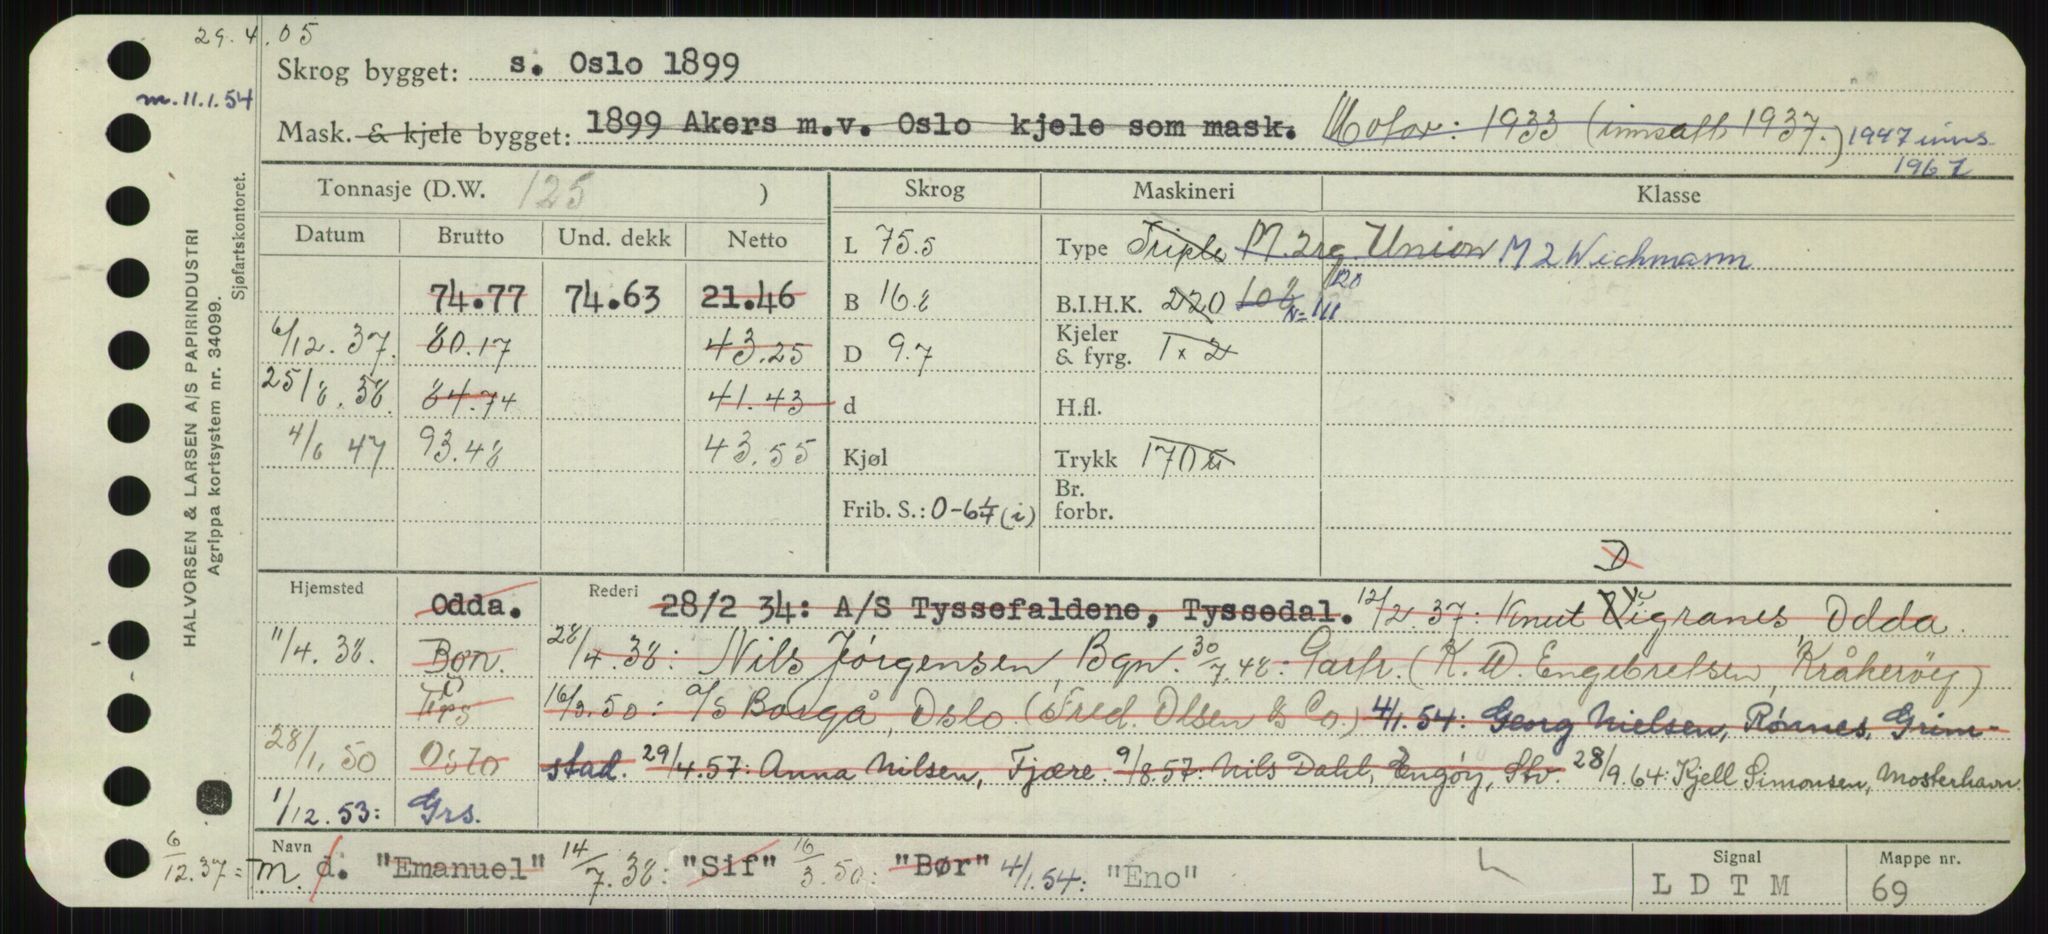 29.4.05
Skrog bygget: s. Oslo 1899
m. 11.1.54
Mask. & kjele bygget: 1899 Akers m.v. Oslo kjele som mask. Motor: 1933 (innsatt 1937.) 1947 inns. 1967
Tonnasje (D.W. 125 ) Skrog Maskineri Klasse
Datum Brutto Und. dekk Netto L 75.5 Type Triple M. 2rg. Union M 2 Wichmann
74.77 74.63 21.46 B 16.8 B.I.H.K. 220 108 120
6/12.37. 80.17 43.25 D 9.7 Kjeler & fyrg. 1 x 2
25/8.38. 84.74 41.43 d H.fl.
4/6 47 93.48 43.55 Kjøl Trykk 170
Frib. S.: 0-6¼ (i) Br. forbr.
D
Hjemsted Odda. Rederi 28/2 34: A/S Tyssefaldene, Tyssedal. 12/2.37: Knut Vigranes Odda.
11/4.38. Bgn. 28/4.38: Nils Jørgensen, Bgn. 30/7.48: Partr. (K. W. Engebretsen, Kråkerøy)
16/3.50: A/S Borgå, Oslo. (Fred. Olsen & Co.) 4/1.54: Georg Nielsen, Rønnes, Grim-
28/1.50 Oslo stad. 29/4.57: Anna Nilsen, Fjære. 9/8.57: Nils Dahl, Engøy, Stv. 28/9.64: Kjell Simonsen, Mosterhavn.
1/12.53: Grs.
Navn Signal Mappe nr.
6/12.37: m. d. "Emanuel" 14/7.38: "Sif" 16/3.50: "Bør" 4/1.54: "Eno" L D T M 69
HALVORSEN & LARSEN A/S PAPIRINDUSTRI
Agrippa kortsystem nr. 34099.
Sjøfartskontoret.